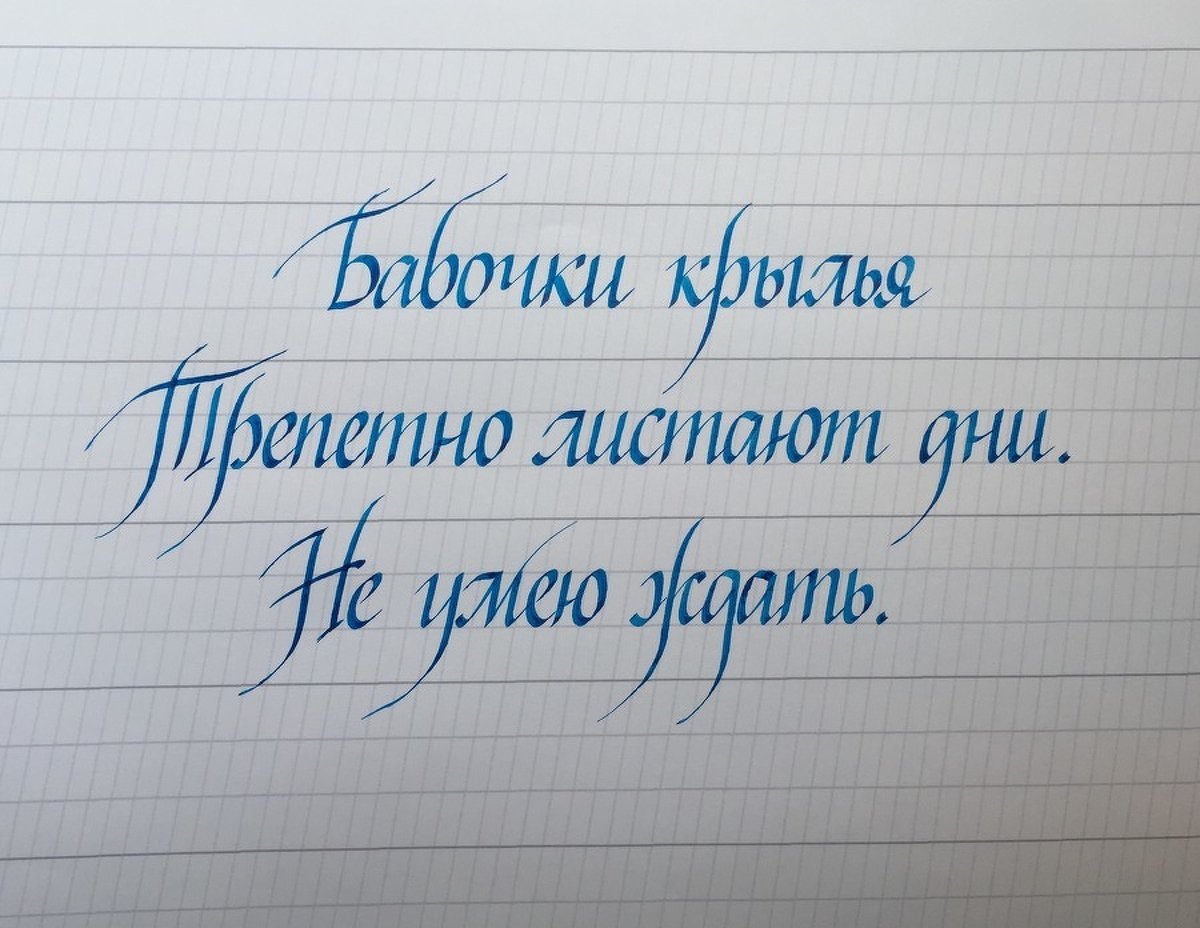 Бабочки крылья
Трепетно листают дни.
Не умею ждать.